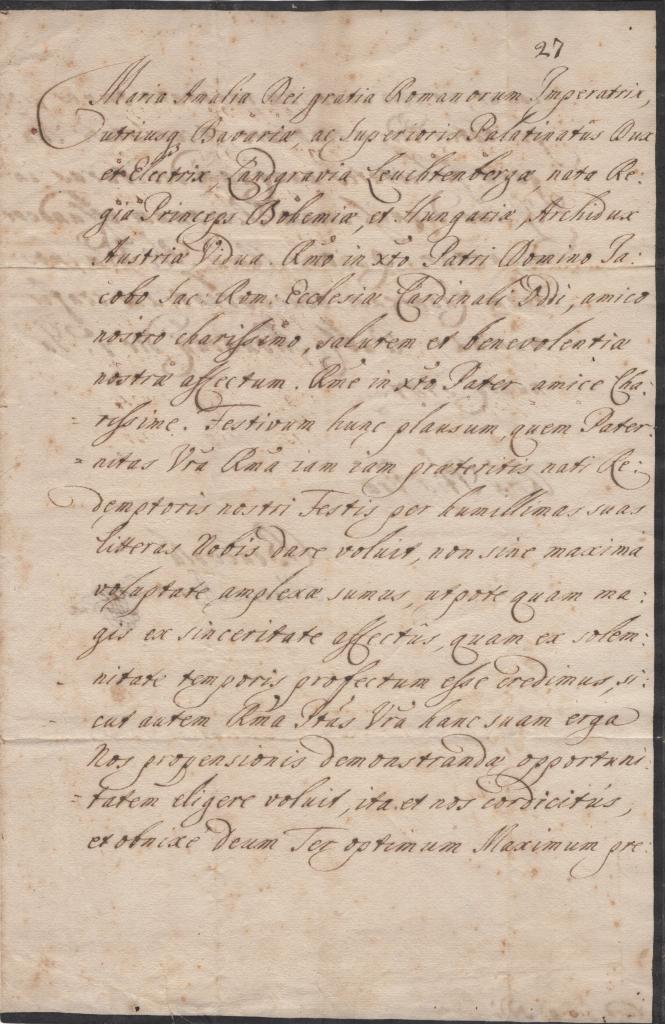 27
Maria Amalia Dei gratia Romanorum Imperatrix,
utriusq Bavariæ, ac Superioris Palatinatûs Dux
et Electrix, Landgravia Leuchtenbergæ, nata Re:
gia Princeps Bohemiæ, et Hungariæ, Archidux
Austriæ Vidua. Rm̃o in xt̃o Patri Domino Ja:
cobo Sac: Rom: Ecclesiæ Cardinali Oddi, amico
nostro charissimo, salutem et benevolentiæ
nostræ affectum. Rm̃e in xt̃o Pater amice Cha:
rissime. Festivum hunc plausum, quem Pater:
nitas Vrã Rm̃a iam iam præteritis nati Re:
demptoris nostri Festis per humillimas suas
litteras Nobis dare voluit, non sine maxima
voluptate amplexæ sumus, utpote quam ma:
gis ex sinceritate affectûs, quam ex solem:
nitate temporis profectum esse credimus, si:
cut autem Rm̃a Ptãs Vrã hanc suam erga
Nos propensionis demonstrandæ opportuni:
tatem eligere voluit, ita et nos cordicitùs,
et obnixe Deum Ter optimum Maximum pre: